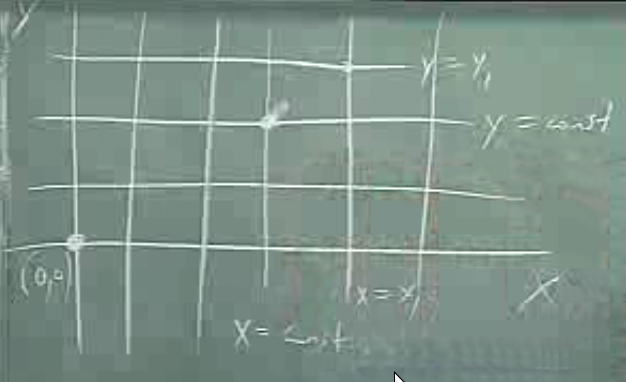 y
y = y₁
y = const
(0,0)
x = x₁
X
X = const